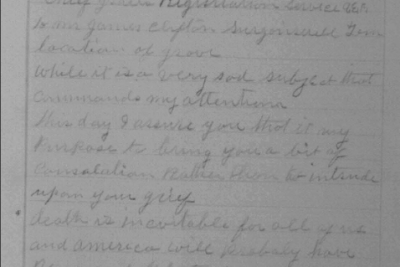 Registration Service GER
to mr James Clifton Surgoinsville Tenn
location of grave
While it is a very sod subject that
commands my attention
this day I assure you that it my
Purpose to bring you a bit of
Consolation Rather than to intrude
upon your grief
death is inevitable for all of us
and America will probaly have